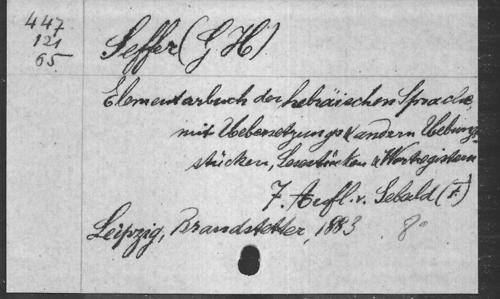 447
121
65
Seffer (G H)
Elementarbuch der hebräischen Sprache,
mit Uebersetzungs & andern Uebungs-
stücken, Lesestücken & Wortregistern
7. Aufl. v. Sebald (F)
Leipzig, Brandstetter, 1883 8°